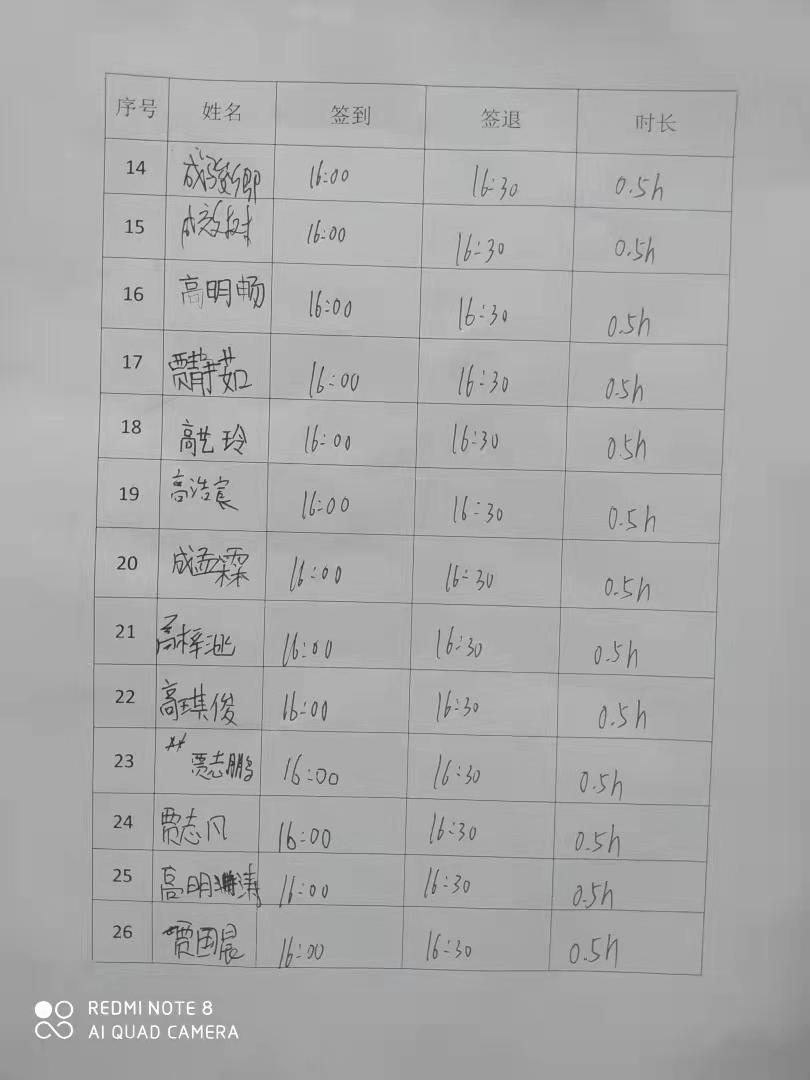 序号 姓名 签到 签退 时长
14 成骏卿 16:00 16:30 0.5h
15 16:00 16:30 0.5h
16 高明畅 16:00 16:30 0.5h
17 贾静茹 16:00 16:30 0.5h
18 高艺玲 16:00 16:30 0.5h
19 高浩宸 16:00 16:30 0.5h
20 成孟霖 16:00 16:30 0.5h
21 高梓洮 16:00 16:30 0.5h
22 高琪俊 16:00 16:30 0.5h
23 贾志鹏 16:00 16:30 0.5h
24 贾志凡 16:00 16:30 0.5h
25 高明涛 16:00 16:30 0.5h
26 贾国晨 16:00 16:30 0.5h
REDMI NOTE 8
AI QUAD CAMERA